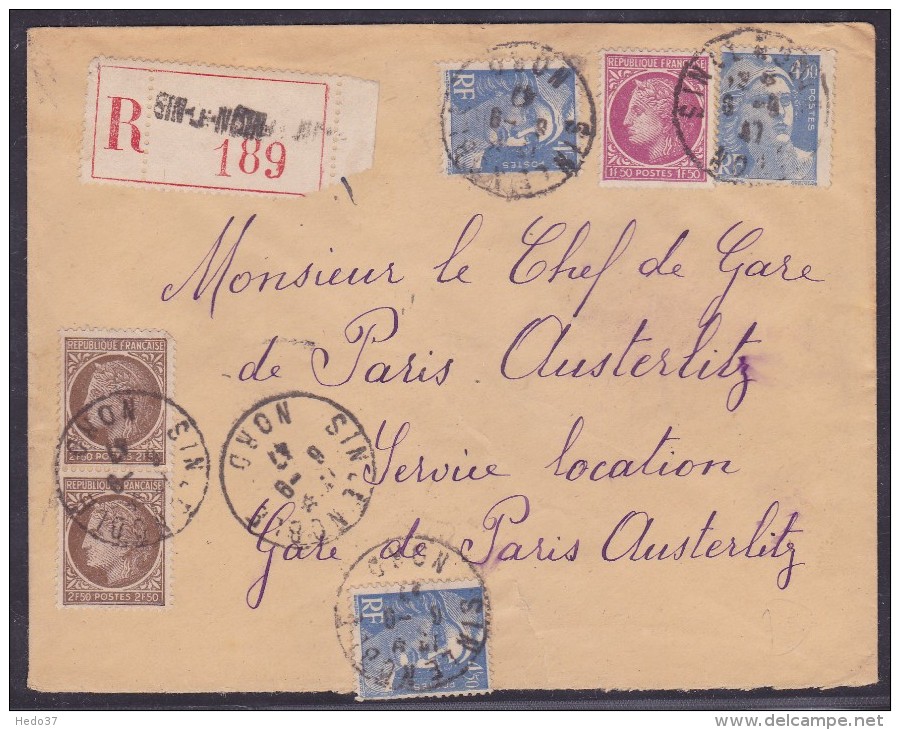 R
SIN-LE-NOBLE
189
RF
POSTES
REPUBLIQUE FRANÇAISE
1F50 POSTES 1F50
4,50
POSTES
RF
Monsieur le Chef de Gare
de Paris Austerlitz
Service location
Gare de Paris Austerlitz
REPUBLIQUE FRANÇAISE
2F50 POSTES 2F50
2F50 POSTES 2F50
SIN-LE-NOBLE
NORD
47
RF
4,50
NORD
Hedo37
www.delcampe.net